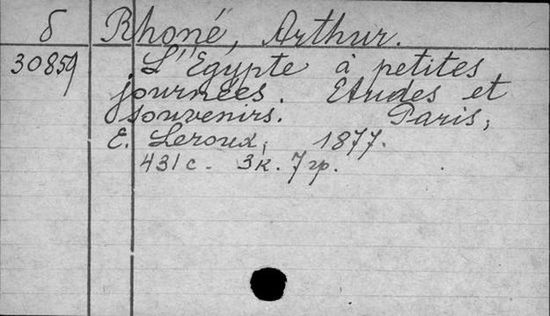 б Rhoné, Arthur.
30859 L'Egypte à petites
journées. Etudes et
souvenirs. Paris,
E. Leroux, 1877.
431 с. 3к. 7 гр.